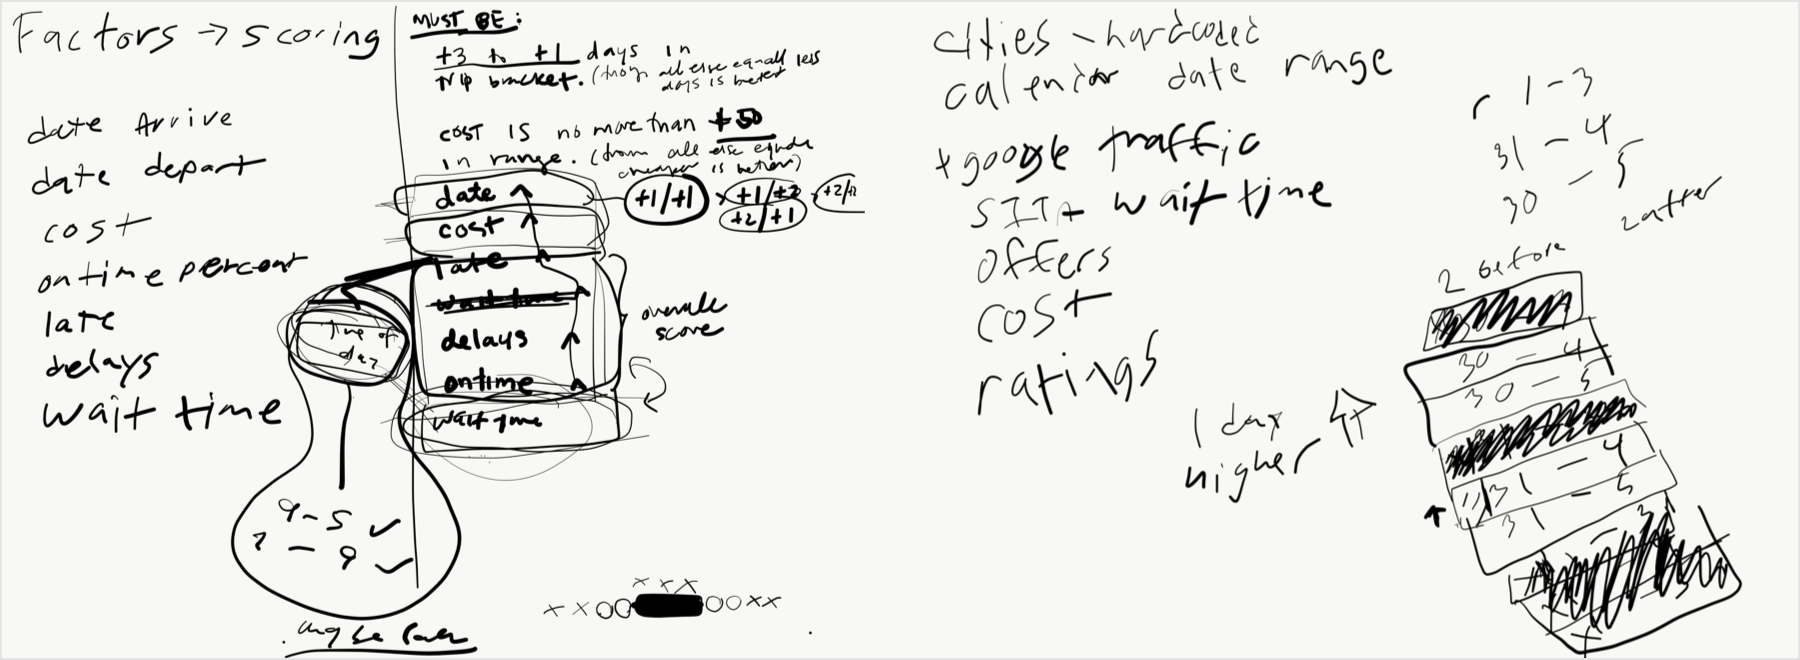 Factors → scoring
date Arrive
date depart
cost
ontime percent
late
delays
wait time
MUST BE:
+3 to +1 days in
trip bracket. (though all else equal less
days is better)
cost is no more than +50
in range. (though all else equal
cheaper is better)
date
+1/+1
+1/+2
+2/+1
cost
late
wait time
delays
ontime
wait time
overall
score
time of
day
9-5 ✓
7 - 9 ✓
x x x
x x O O O O x x
cities - hardcoded
calendar date range
+ google traffic
wait time
offers
cost
ratings
1 - 3
31 - 4
30 - 5
2 after
2 before
30 - 4
30 - 5
31 - 4
31 - 5
1 day
higher